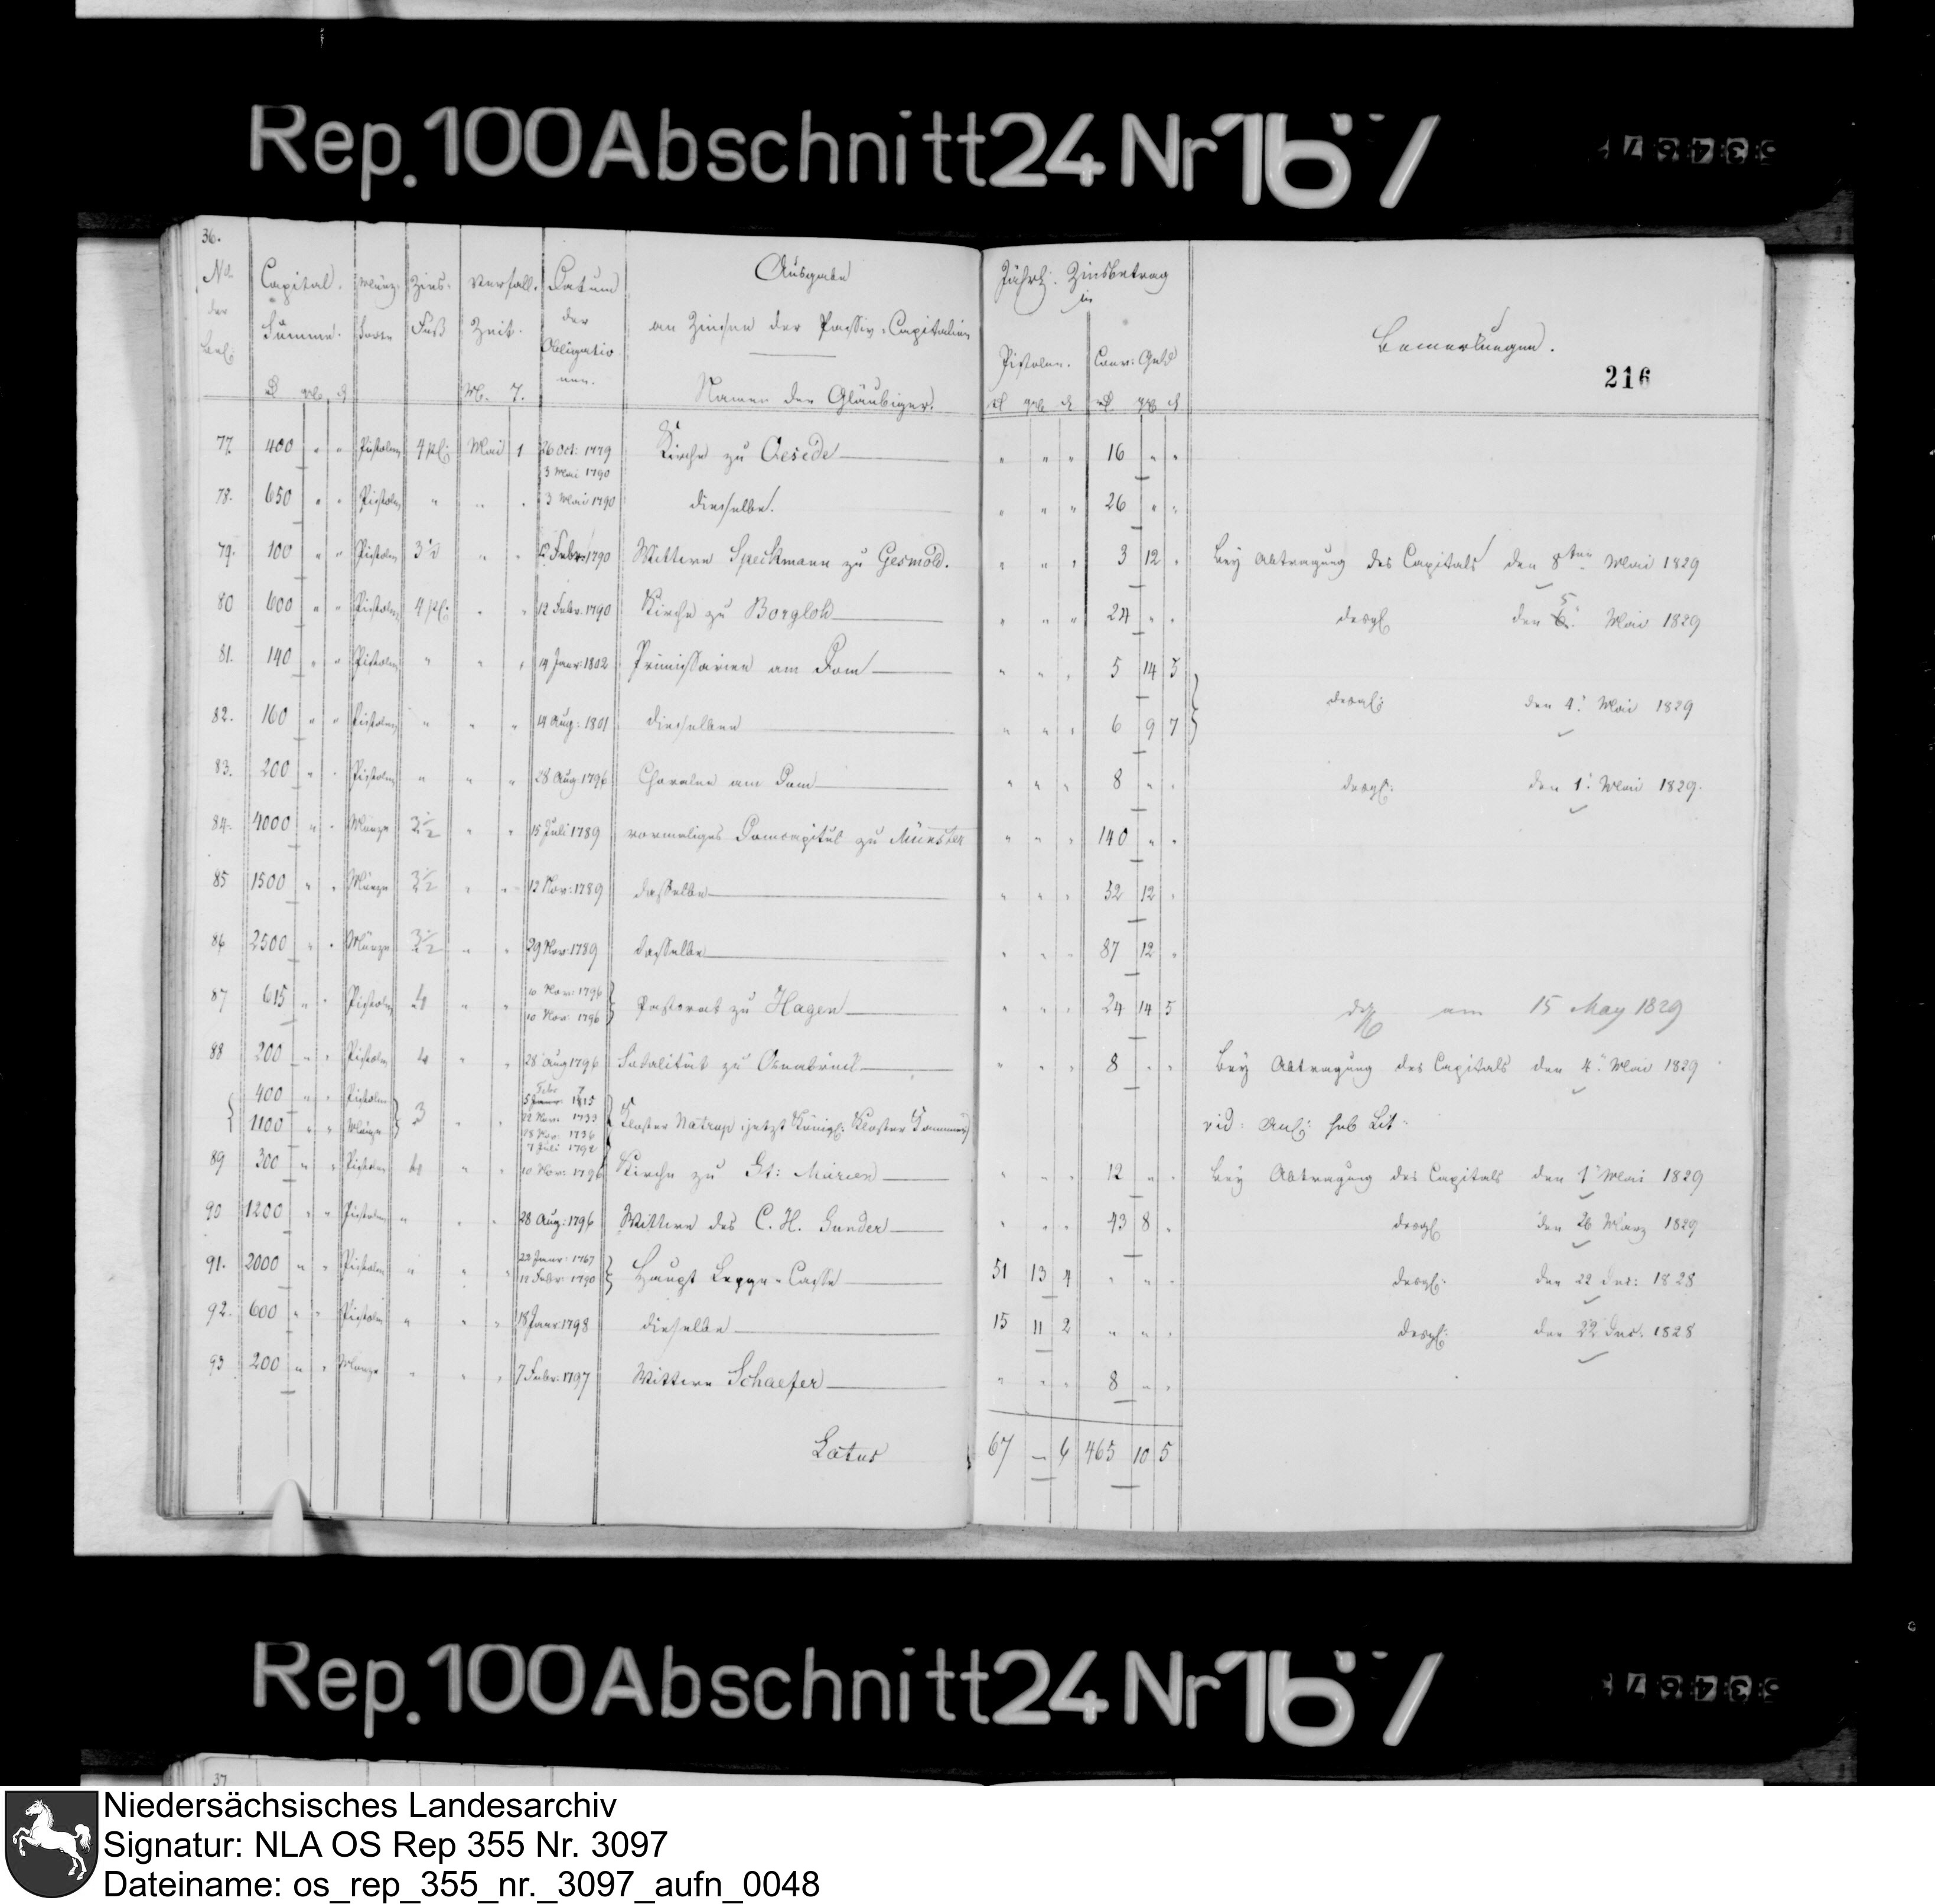 Rep. 100 Abschnitt 24 Nr 167
53467
36.
No. der Bel: Capital. Summe. Münz. Sorte Zins. Fuß Verfall. Zeit. Datum der Obligatio nen. Ausgabe Jährl. Zinsbetrag in Bemerkungen.
an Zinsen der Passiv-Capitalien
Pistolen. Conv: Geld
216
M. T. Namen der Gläubiger.
77. 400 " " Pistolen 4 pC: Mai 1 26 Oct: 1779 3 Mai 1790 Kirche zu Oesede " " " 16 " "
78. 650 " " Pistolen " " " 3 Mai 1790 dieselbe. " " " 26 " "
79. 100 " " Pistolen 3½ " " 12 Febr: 1790 Wittwe Speckmann zu Gesmold. " " " 3 12 " Bey Abtragung des Capitals den 8ten Mai 1829
80 600 " " Pistolen 4 pC: " " 12 Febr. 1790 Kirche zu Borgloh " " " 24 " " desgl den 5 Mai 1829
81. 140 " " Pistolen " " " 14 Janr: 1802 Primissarien am Dom " " " 5 14 3
desgl: den 4. Mai 1829
82. 160 " " Pistolen " " " 14 Aug: 1801 dieselben " " " 6 9 7
83. 200 " " Pistolen " " " 28 Aug 1796 Choralen am Dom " " " 8 " " desgl: den 1. Mai 1829.
84. 4000 " " Münze 3½ " " 15 Juli 1789 vormaliges Domcapitel zu Münster " " " 140 " "
85 1500 " " Münze 3½ " " 12 Nov: 1789 dasselbe " " " 52 12 "
86 2500 " " Münze 3½ " " 29 Nov: 1789 dasselbe " " " 87 12 "
87 615 " " Pistolen 4 " " 10 Nov: 1796 10 Nov: 1796 Pastorat zu Hagen " " " 24 14 5 dsgl am 15 May 1829
88 200 " " Pistolen 4 " " 28 Aug 1796 Sodalität zu Osnabrück " " " 8 " " Bey Abtragung des Capitals den 4. Mai 1829
400 " " Pistolen
1100 " " Münze 3 " " 22 Nov. 1733 18 Nov. 1736 7 Juli 1792 Kloster Natrup (jetzt Königl: Kloster Kammer) vid: Anl: sub Lit.
89 300 " " Pistolen 4 " " 10 Nov: 1796 Kirche zu St: Marien " " " 12 " " Bey Abtragung des Capitals den 1. Mai 1829
90 1200 " " Pistolen " " " 28 Aug: 1796 Wittwe des C. H. Gunder " " " 43 8 " desgl den 26 März 1829
91. 2000 " " Pistolen " " " 22 Janr: 1767 12 Febr: 1790 Haupt Legge-Casse 51 13 4 " " " desgl: den 22 Dec: 1828
92. 600 " " Pistolen " " " 18 Janr 1798 dieselbe 15 11 2 " " " desgl: den 22 Dec. 1828
93 200 " " Münze " " " 7 Febr. 1797 Wittwe Schaefer " " " 8 " "
Latus 67 — 6 465 10 5
Rep. 100 Abschnitt 24 Nr 167
53467
37
Niedersächsisches Landesarchiv
Signatur: NLA OS Rep 355 Nr. 3097
Dateiname: os_rep_355_nr._3097_aufn_0048